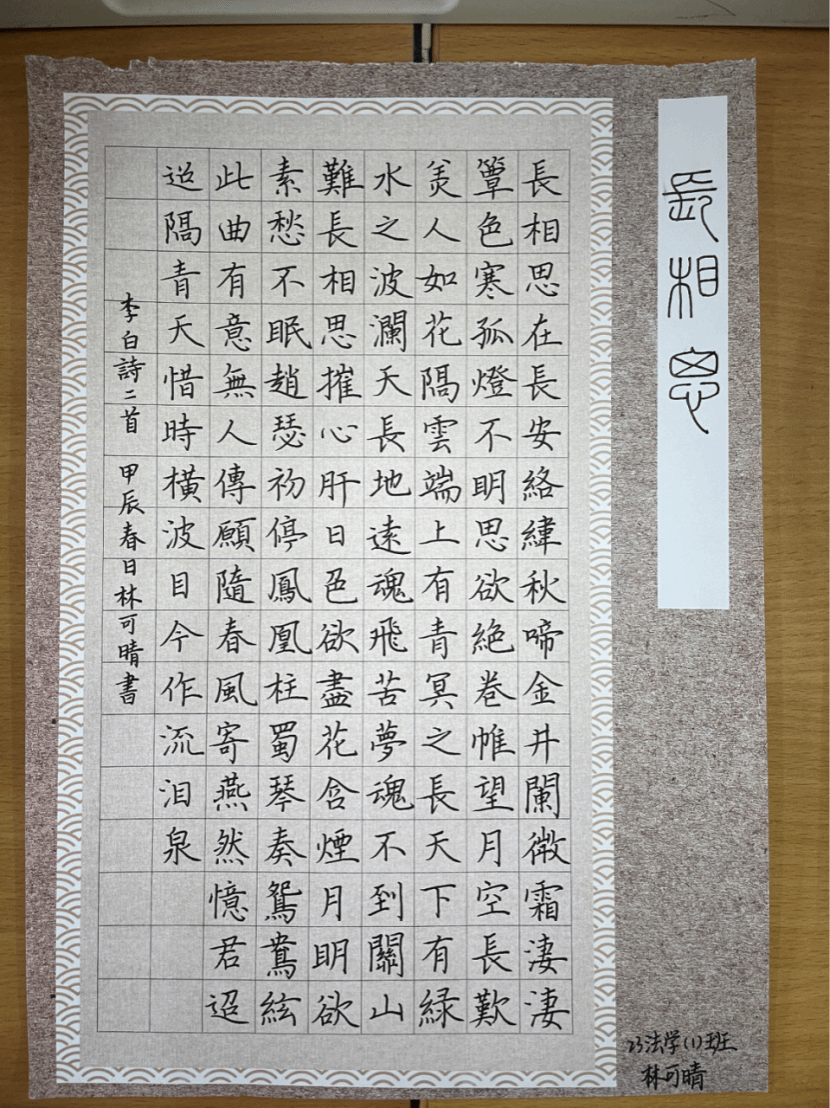 長相思
長相思在長安絡緯秋啼金井闌微霜淒淒
簟色寒孤燈不明思欲絕卷帷望月空長歎
美人如花隔雲端上有青冥之長天下有緑
水之波瀾天長地遠魂飛苦夢魂不到關山
難長相思摧心肝日色欲盡花含煙月明欲
素愁不眠趙瑟初停鳳凰柱蜀琴奏鴛鴦絃
此曲有意無人傳願隨春風寄燕然憶君迢
迢隔青天惜時橫波目今作流泪泉
李白詩二首 甲辰春日林可晴書
23法学(1)班
林可晴